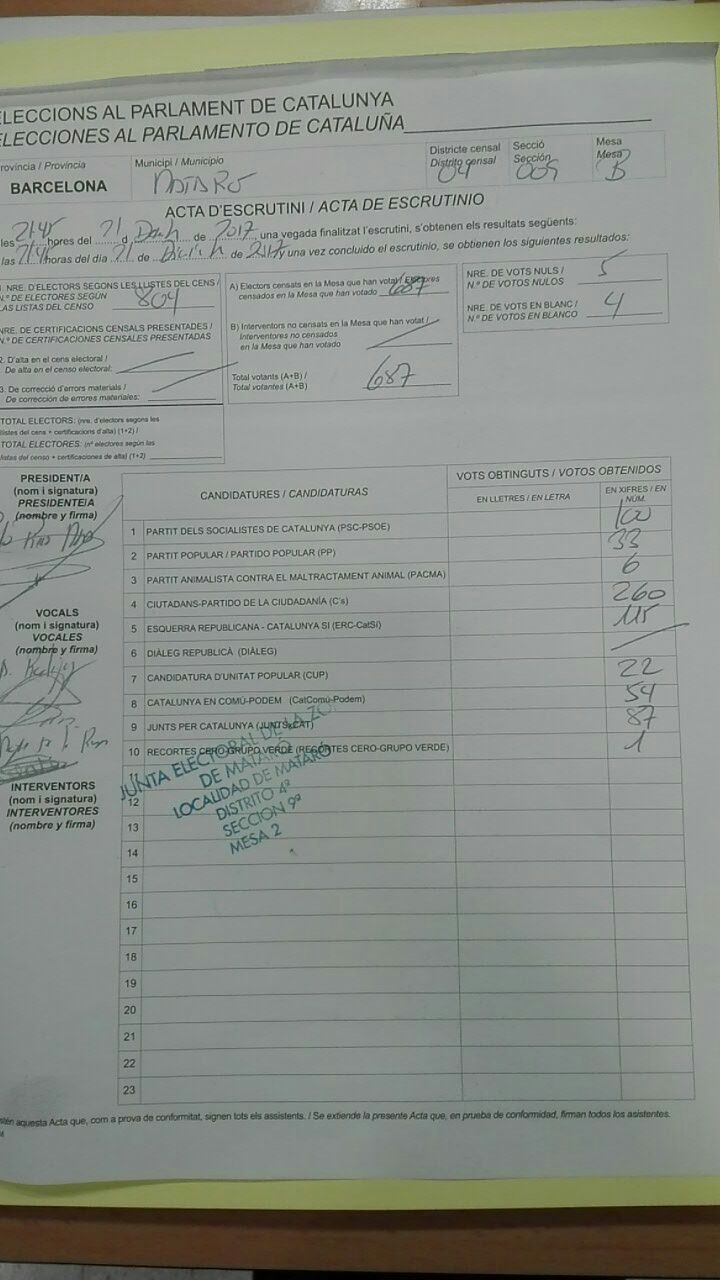 LECCIONS AL PARLAMENT DE CATALUNYA
ELECCIONES AL PARLAMENTO DE CATALUÑA
rovincia / Provincia
BARCELONA
Municipi / Municipio
MATARÓ
Districte censal
Distrito censal
04
Secció
Sección
009
Mesa
Mesa
B
ACTA D'ESCRUTINI / ACTA DE ESCRUTINIO
les 21:45 hores del 21 d de 2017, una vegada finalitzat l'escrutini, s'obtenen els resultats següents:
las 21:45 horas del día 21 de de 2017 y una vez concluido el escrutinio, se obtienen los siguientes resultados:
1. NRE. D'ELECTORS SEGONS LES LLISTES DEL CENS /
N.º DE ELECTORES SEGÚN
LAS LISTAS DEL CENSO 804
NRE. DE CERTIFICACIONS CENSALS PRESENTADES /
N.º DE CERTIFICACIONES CENSALES PRESENTADAS
2. D'alta en el cens electoral /
De alta en el censo electoral:
3. De correcció d'errors materials /
De corrección de errores materiales:
TOTAL ELECTORS: (nre. d'electors segons les
llistes del cens + certificacions d'alta) (1+2) /
TOTAL ELECTORES: (nº electores según las
listas del censo + certificaciones de alta) (1+2)
A) Electors censats en la Mesa que han votat / Electores
censados en la Mesa que han votado 687
B) Interventors no censats en la Mesa que han votat /
Interventores no censados
en la Mesa que han votado
Total votants (A+B) /
Total votantes (A+B) 687
NRE. DE VOTS NULS /
N.º DE VOTOS NULOS 5
NRE. DE VOTS EN BLANC /
N.º DE VOTOS EN BLANCO 4
PRESIDENT/A
(nom i signatura)
PRESIDENTE/A
(nombre y firma)
VOCALS
(nom i signatura)
VOCALES
(nombre y firma)
INTERVENTORS
(nom i signatura)
INTERVENTORES
(nombre y firma)
CANDIDATURES / CANDIDATURAS
VOTS OBTINGUTS / VOTOS OBTENIDOS
EN LLETRES / EN LETRA
EN XIFRES / EN NÚM.
1 PARTIT DELS SOCIALISTES DE CATALUNYA (PSC-PSOE) 100
2 PARTIT POPULAR / PARTIDO POPULAR (PP) 33
3 PARTIT ANIMALISTA CONTRA EL MALTRACTAMENT ANIMAL (PACMA) 6
4 CIUTADANS-PARTIDO DE LA CIUDADANÍA (C's) 260
5 ESQUERRA REPUBLICANA - CATALUNYA SI (ERC-CatSí) 115
6 DIÀLEG REPUBLICÀ (DIÀLEG)
7 CANDIDATURA D'UNITAT POPULAR (CUP) 22
8 CATALUNYA EN COMÚ-PODEM (CatComú-Podem) 54
9 JUNTS PER CATALUNYA (JUNTSxCAT) 87
10 RECORTES CERO-GRUPO VERDE (RECORTES CERO-GRUPO VERDE) 1
JUNTA ELECTORAL DE LA ZO
DE MATARÓ
LOCALIDAD DE MATARÓ
DISTRITO 4º
SECCION 9ª
MESA 2
12
13
14
15
16
17
18
19
20
21
22
23
stén aquesta Acta que, com a prova de conformitat, signen tots els assistents. / Se extiende la presente Acta que, en prueba de conformidad, firman todos los asistentes.